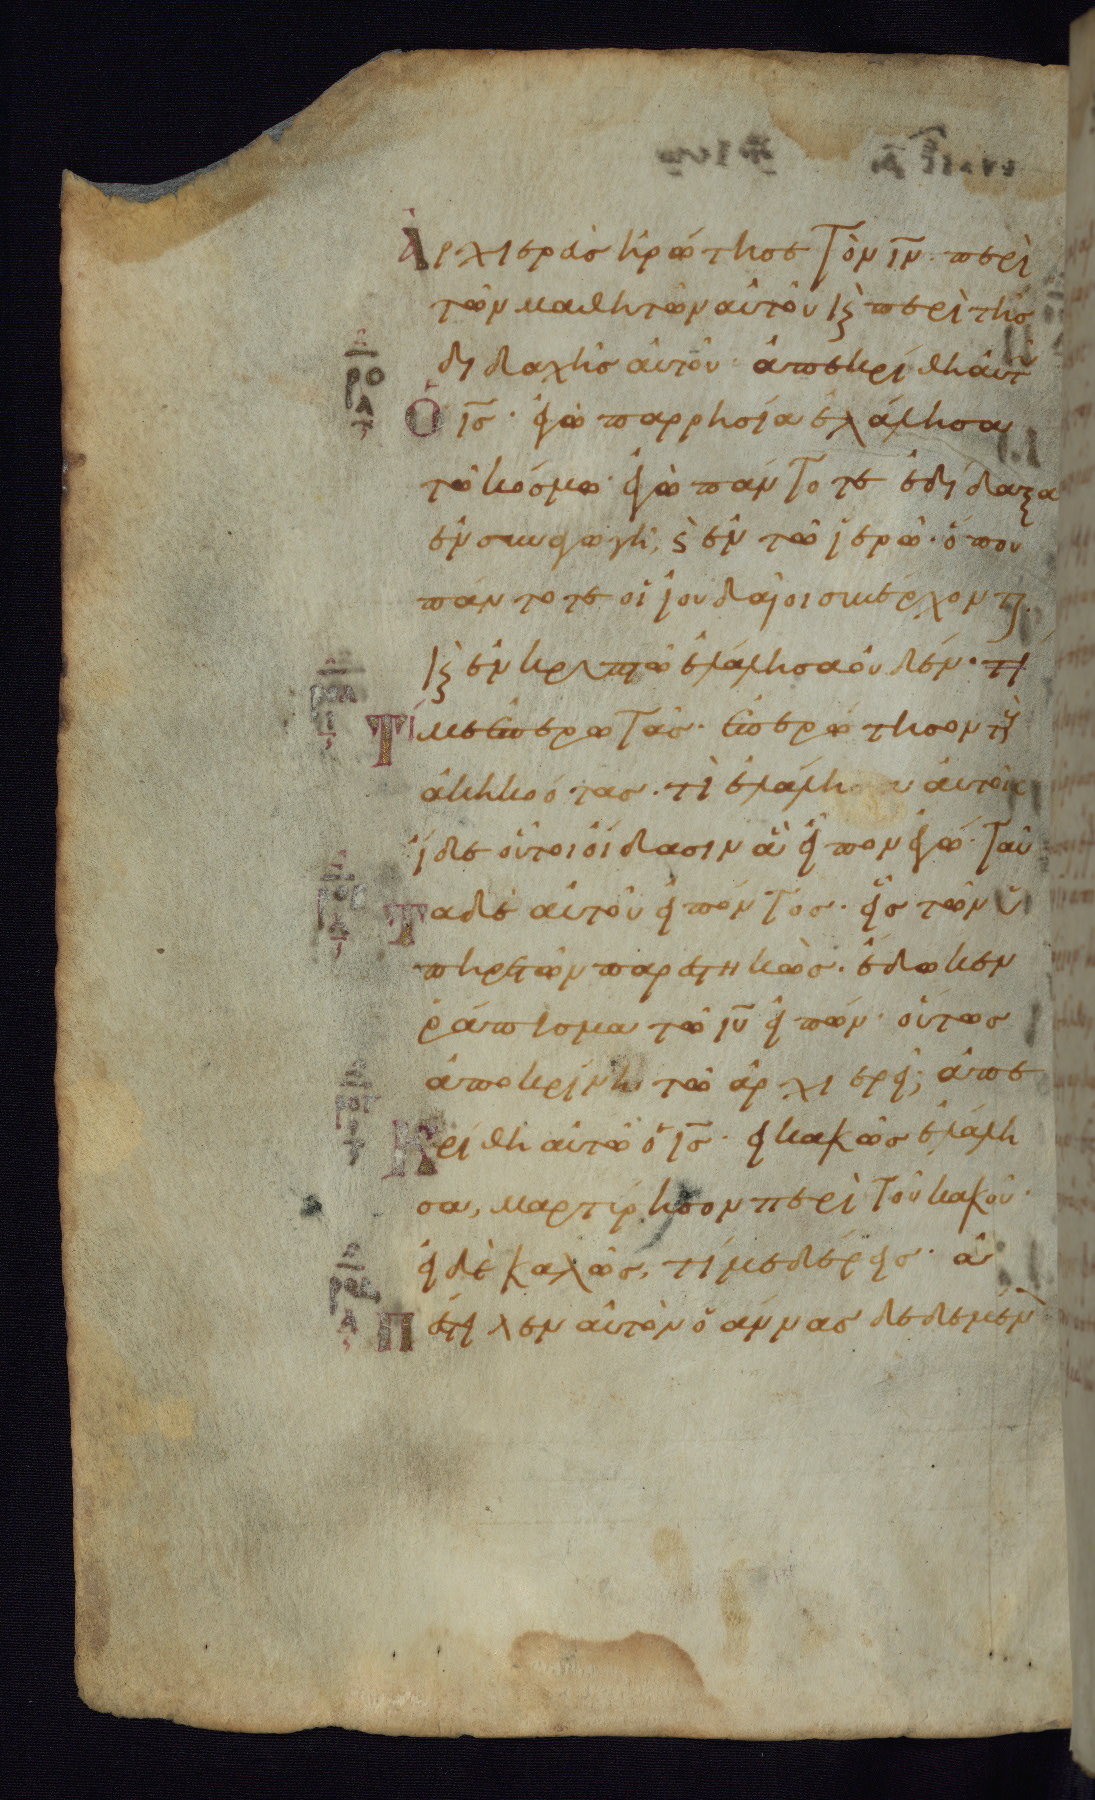 Ἀρχιερεὺς ἠρώτησε τὸν ιν̅· περὶ
τῶν μαθητῶν αὐτοῦ κ(αὶ) περὶ τῆς
διδαχῆς αὐτοῦ· ἀπεκρίθη αὐτῶ
Ὁ ις̅· ἐγὼ παρρησία ἐλάλησα
τῶ κόσμω· ἐγὼ πάντοτε ἐδίδαξα
ἐν συναγωγῆ, κ(αὶ) ἐν τῶ ἱερῶ· ὅπου
πάντοτε οἱ ἰουδαῖοι συνέρχοντ(αι)·
κ(αὶ) ἐν κρυπτῶ ἐλάλησα οὐδέν· τί
με ἐπερωτᾶς· ἐπερώτησον τοὺς
ἀκηκοότας· τί ἐλάλησα αὐτοῖς
ἴδε οὗτοι οἴδασιν ἃ εἶπον ἐγώ· Ταῦ
τα δὲ αὐτοῦ εἰπόντος· εἷς τῶν ὑ
πηρετῶν παρεστηκὼς· ἔδωκεν
ῥάπισμα τῶ ιυ̅ εἰπών· οὕτως
ἀποκρίνη τῶ ἀρχιερεῖ; ἀπε
Κρίθη αὐτῶ ὁ ις̅· εἰ κακῶς ἐλάλη
σα, μαρτύρησον περὶ τοῦ κακοῦ·
εἰ δὲ καλῶς, τί με δέρεις· ἀ
Πέστειλεν αὐτὸν ὁ ἄννας δεδεμέν(ον)
ρο
α
ροα
ι
ροβ
α
ρογ
ι
ροδ
α